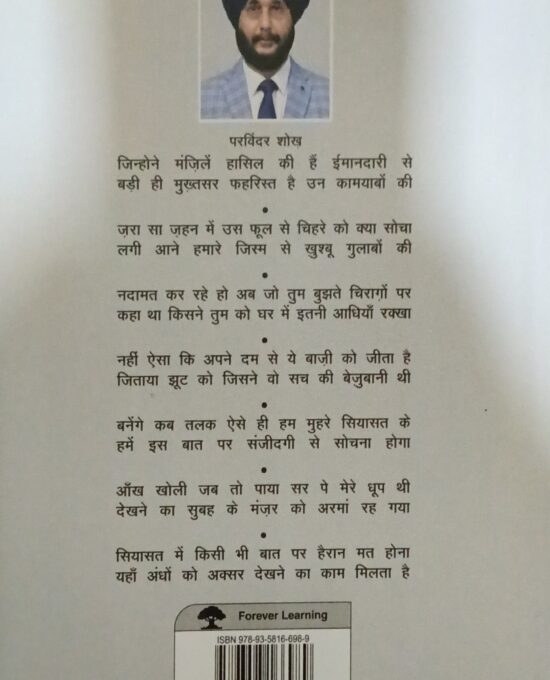 परविंदर शोख़
जिन्होने मंज़िलें हासिल की हैं ईमानदारी से
बड़ी ही मुख़्तसर फहरिस्त है उन कामयाबों की
•
ज़रा सा ज़हन में उस फूल से चिहरे को क्या सोचा
लगी आने हमारे जिस्म से ख़ुश्बू गुलाबों की
•
नदामत कर रहे हो अब जो तुम बुझते चिराग़ों पर
कहा था किसने तुम को घर में इतनी आधियाँ रक्खा
•
नहीं ऐसा कि अपने दम से ये बाज़ी को जीता है
जिताया झूट को जिसने वो सच की बेज़ुबानी थी
•
बनेंगे कब तलक ऐसे ही हम मुहरे सियासत के
हमें इस बात पर संजीदगी से सोचना होगा
•
आँख खोली जब तो पाया सर पे मेरे धूप थी
देखने का सुबह के मंज़र को अरमां रह गया
•
सियासत में किसी भी बात पर हैरान मत होना
यहाँ अंधों को अक्सर देखने का काम मिलता है
Forever Learning
ISBN 978-93-5816-698-9